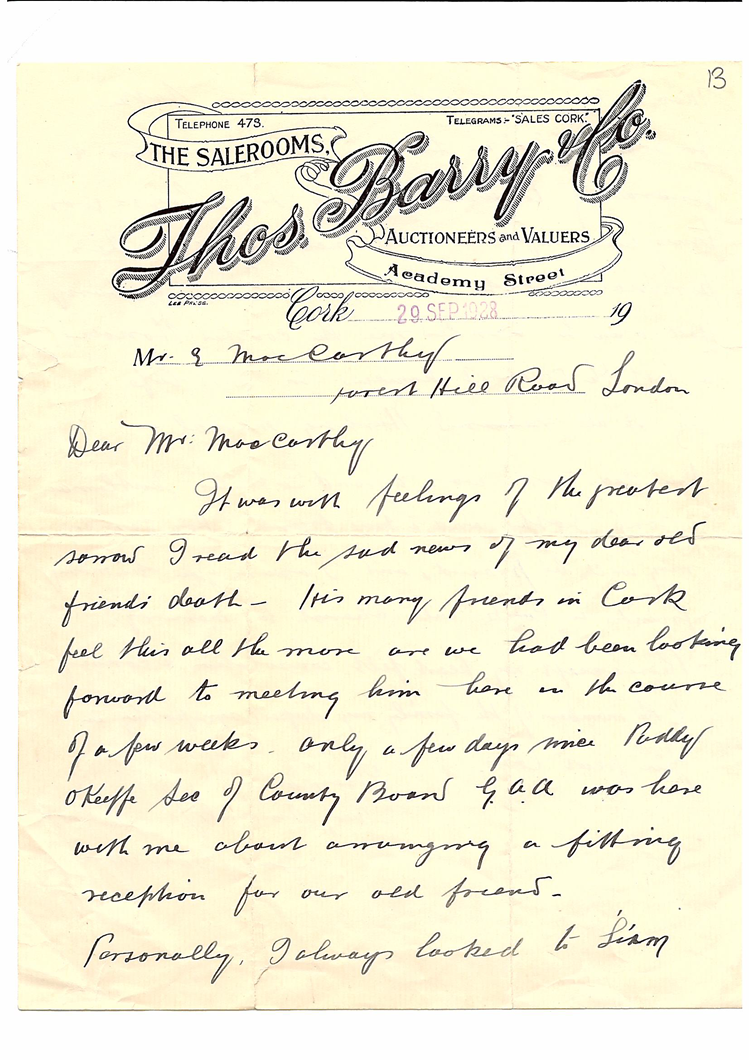 13
TELEPHONE 473.
TELEGRAMS:- "SALES CORK."
THE SALEROOMS,
Thos. Barry & Co.
AUCTIONEERS and VALUERS
Academy Street
LEE PRESS.
Cork 29 SEP 1928 19
Mr. E MacCarthy
Forest Hill Road London
Dear Mr. MacCarthy
It was with feelings of the greatest
sorrow I read the sad news of my dear old
friends death - His many friends in Cork
feel this all the more are we had been looking
forward to meeting him here in the course
of a few weeks. Only a few days since Paddy
OKeeffe Sec of County Board G.A.A was here
with me about arranging a fitting
reception for our old friend -
Personally, I always looked to Liam